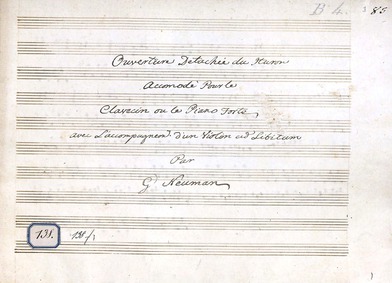 B 4. 85
Ouverture Detachée du Huron
Acomodé Pour le
Clavecin ou le Piano Forte,
avec L'accompagnemt d'un Violon ad Libitum
Par
G Neuman
131. 131/1